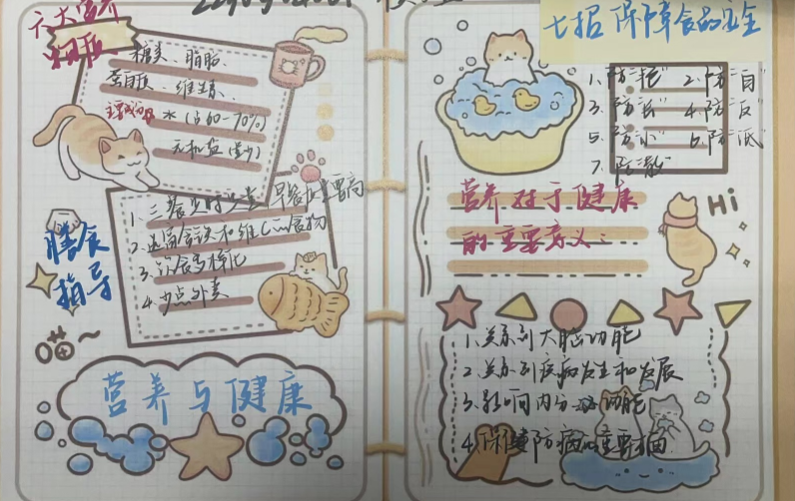 六大营养
糖类、脂肪
蛋白质、维生素、
主要成分 水(占60-70%)
无机盐(最少)
1、三餐定时定量 早餐
2、含铁和维C的食物
3、饮食多样化
4、少点外卖
膳食
指导
营养与健康
七招保障食品安全
1、防“艳” 2、防“白”
3、防“长” 4、防“反”
5、防“小” 6、防“低”
7、防“散”
营养对于健康
的重要意义：
Hi
1、关系到大脑功能
2、关系到疾病发生和发展
3、影响内分泌功能
4、保健防病的重要